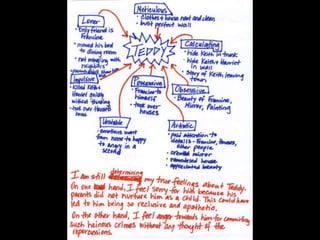 Meticulous
- clothes + house neat and clean
- built perfect wall
Loner
- only friend is Francine
- moved his bed to dining room
- not mingling with neighbors
TEDDY
Calculating
- hide Keith in trunk
- hide Keith + Harriet in wall
- Story of Keith leaving town
Impulsive
- killed Keith +
Harriet quickly
without thinking
- took over Harriet's
house
Possessive
- Francine to
himself
- took over
houses
Obsessive
- Beauty of Francine,
Mirror, Painting
Unstable
- emotions went
from calm to happy
to angry in a
second
Artistic
- paid attention to
details - Francine, houses,
other people
- created mirror
- remodeled house
- appreciated beauty
I am still determining my true feelings about Teddy.
On one hand, I feel sorry for him because his
parents did not nurture him as a child. This could have
led to him being so reclusive and apathetic.
On the other hand, I feel anger towards him for committing
such heinous crimes without any thought of the
repercussions.